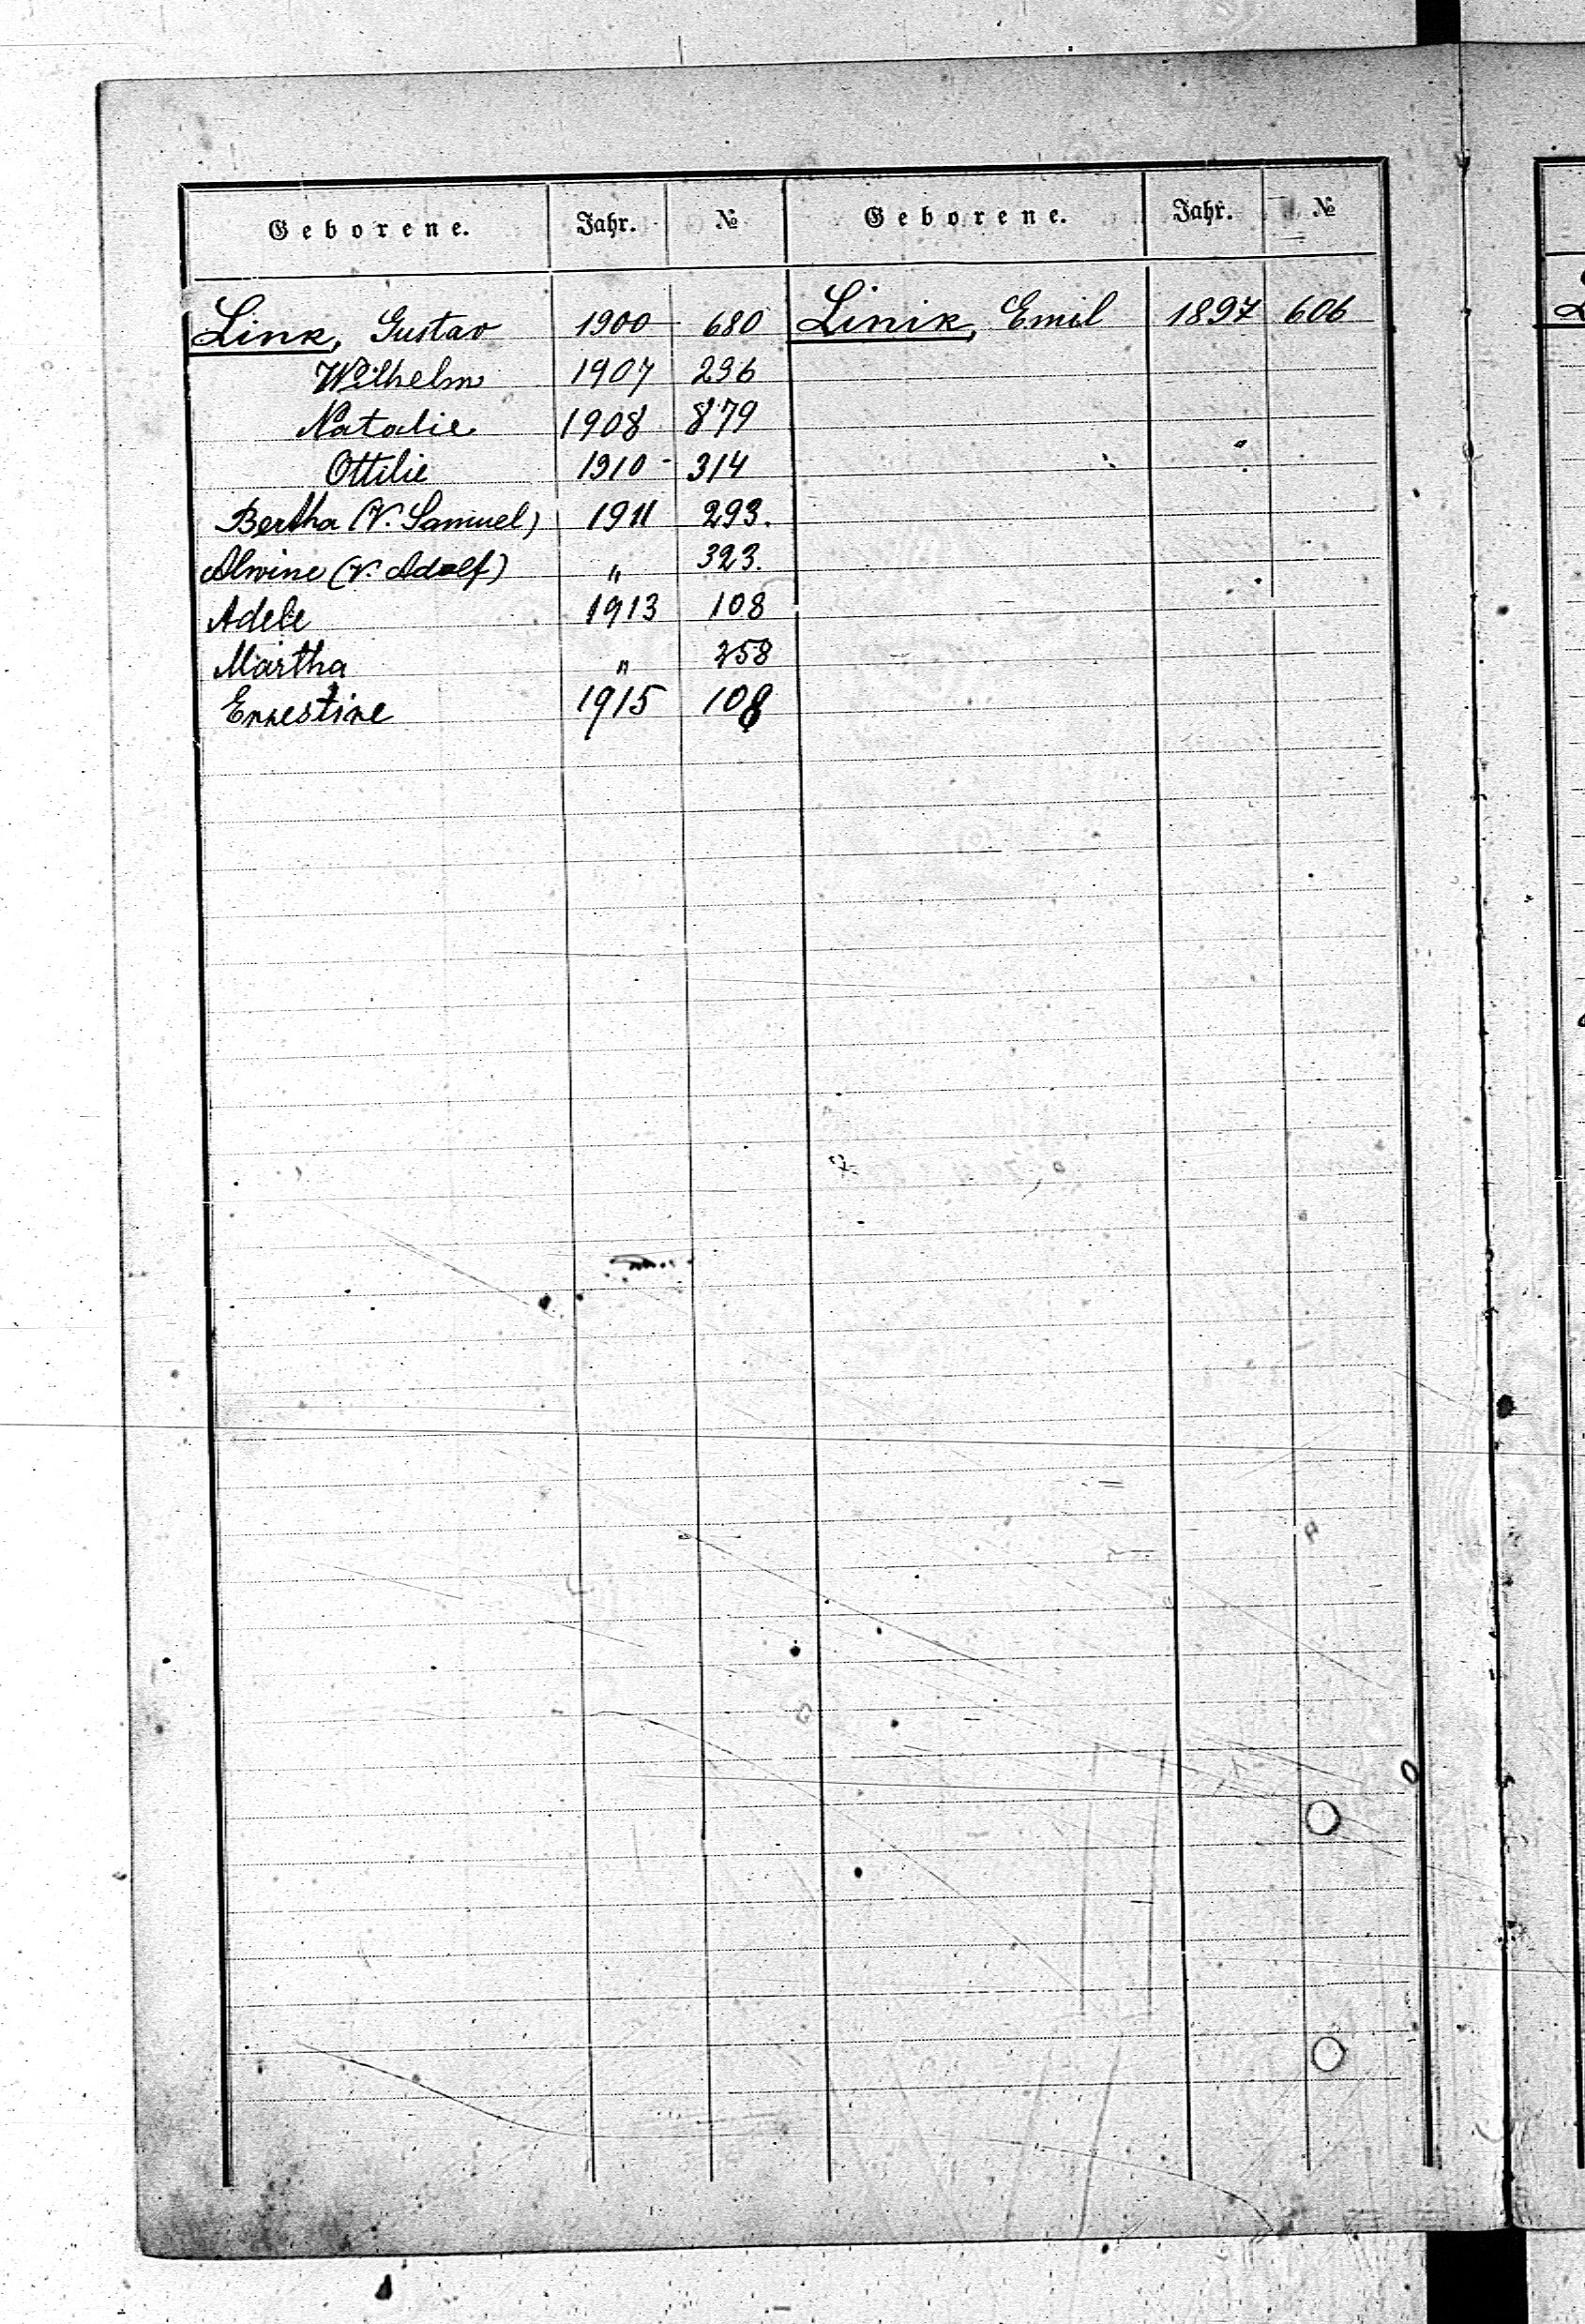 Geborene. Jahr. № Geborene. Jahr. №
Link, Gustav 1900 680 Linik, Emil 1897 606
Wilhelm 1907 296
Natalie 1908 879
Ottilie 1910 - 314
Bertha (V. Samuel) 1911 293.
Alwine (V. Adolf) " 323.
Adele 1913 108
Martha " 258
Ernestine 1915 108